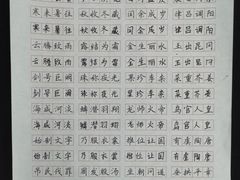 寒来暑往 秋收冬藏 闰余成岁 律吕调阳
寒来暑往 秋收冬藏 闰余成岁 律吕调阳
云腾致雨 露结为霜 金生丽水 玉出昆冈
云腾致雨 露结为霜 金生丽水 玉出昆冈
剑号巨阙 珠称夜光 果珍李柰 菜重芥姜
剑号巨阙 珠称夜光 果珍李柰 菜重芥姜
海咸河淡 鳞潜羽翔 龙师火帝 鸟官人皇
海咸河淡 鳞潜羽翔 龙师火帝 鸟官人皇
始制文字 乃服衣裳 推位让国 有虞陶唐
始制文字 乃服衣裳 推位让国 有虞陶唐